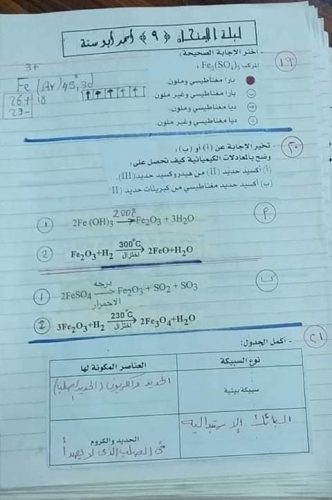 ليلة الامتحان ﴿٩﴾ أحمد أبو سنة
١٩) - اختر الإجابة الصحيحة:
المركب Fe₂(SO₄)₃ :
بارا مغناطيسي وملون.
بارا مغناطيسي وغير ملون
ديا مغناطيسي وملون.
ديا مغناطيسي وغير ملون
3+
Fe (Ar) 4S°, 3d
26 + 18
↑ ↑ ↑ ↑ ↑
٢٠) - تخير الإجابة عن (أ) أو (ب):
وضح بالمعادلات الكيميائية كيف تحصل على:
(أ) أكسيد حديد (II) من هيدروكسيد حديد (III).
(ب) أكسيد حديد مغناطيسي من كبريتات حديد (II)
١ 2Fe (OH)₃ 200°C→ Fe₂O₃ + 3H₂O
٢ Fe₂O₃+H₂ 300°C اختزال→ 2FeO+H₂O
١ 2FeSO₄ درجة الاحمرار→ Fe₂O₃ + SO₂ + SO₃
٢ 3Fe₂O₃+H₂ 230°C اختزال→ 2Fe₃O₄+H₂O
٢١) - أكمل الجدول:
نوع السبيكة العناصر المكونة لها
سبيكة بينية الحديد والكربون (الحديد الصلب)
السبائك الاستبدالية الحديد والكروم
في الصلب الذي لا يصدأ